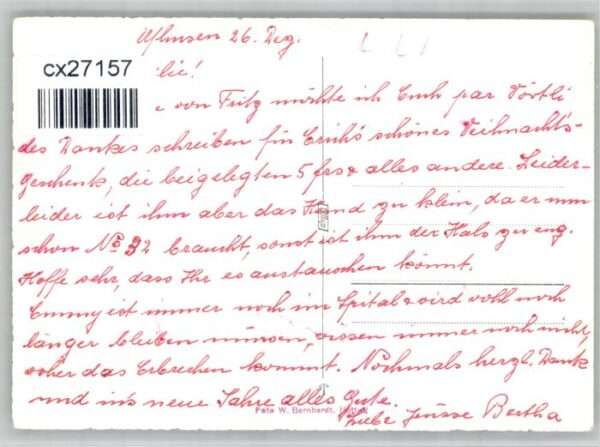 Uhwiesen 26. Dez.
cx27157
lie!
von Fritz möchte ich Euch par Wörtli
des Dankes schreiben für Erich's schönes Weihnachts-
geschenk, die beigelegten 5 frs & alles andere. Leider-
leider ist ihm aber das Hemd zu klein, da er nun
schon No 32 braucht, sonst ist ihm der Hals zu eng.
Hoffe sehr, dass Ihr es austauschen könnt.
Emmy ist immer noch im Spital & wird wohl noch
länger bleiben müssen, wissen immer noch nicht,
woher das Erbrechen kommt. Nochmals herzl. Dank
und in's neue Jahre alles Gute.
Foto W. Bernhardt,
Liebe Grüsse Bertha